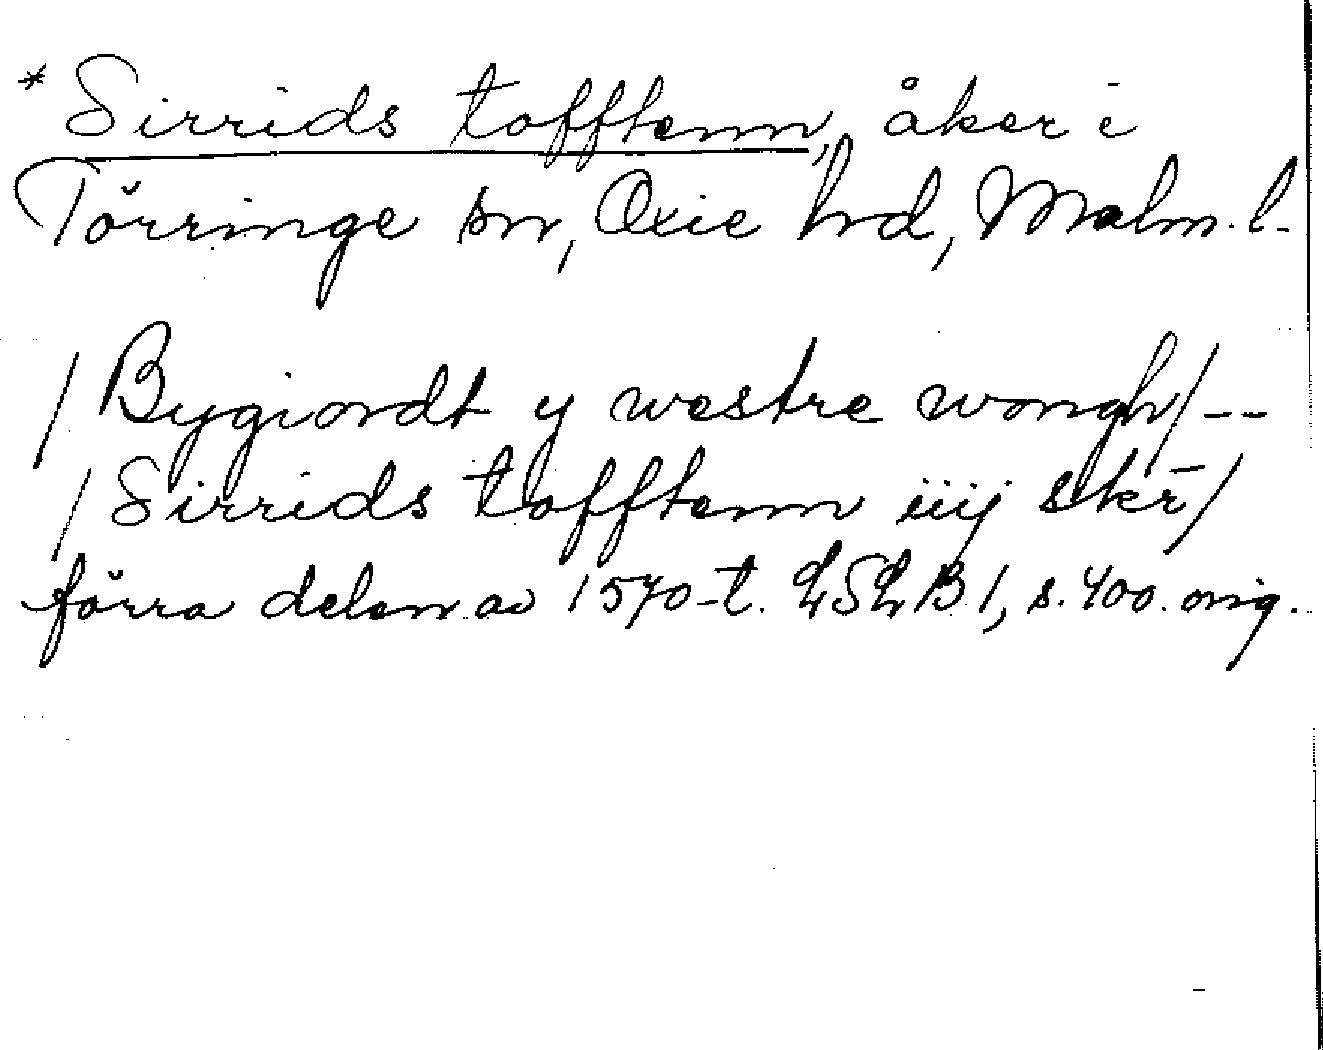 * Sirrids tofftenn, åker i
Törringe sn, Oxie hd, Malm. l.
/Bygiordt y westre wongh/--
/Sirrids tofftenn iiij skr̄/
förra delen av 1570-t. LSLB 1, s. 400. orig.